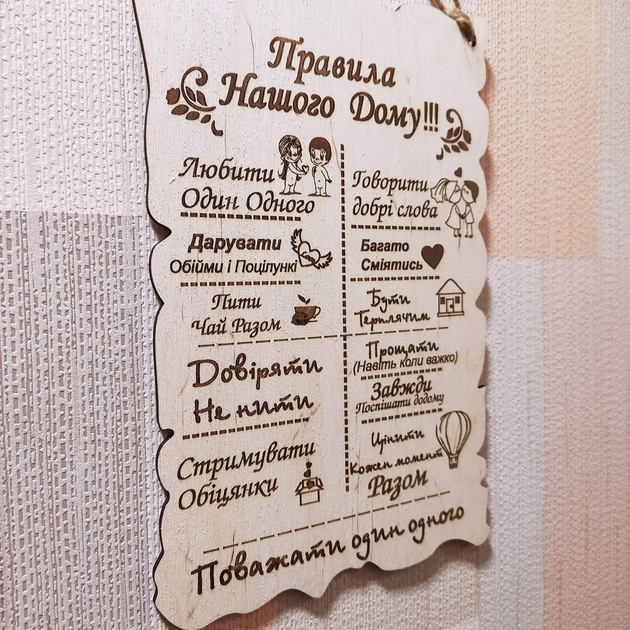 Правила
Нашого Дому!!!
Любити
Один Одного
Дарувати
Обійми і Поцілункі
Пити
Чай Разом
Довіряти
Не нити
Стримувати
Обіцянки
Говорити
добрі слова
Багато
Сміятись
Бути
Терплячим
Прощати
(Навіть коли важко)
Завжди
Поспішати додому
Цінити
Кожен момент
Разом
Поважати один одного